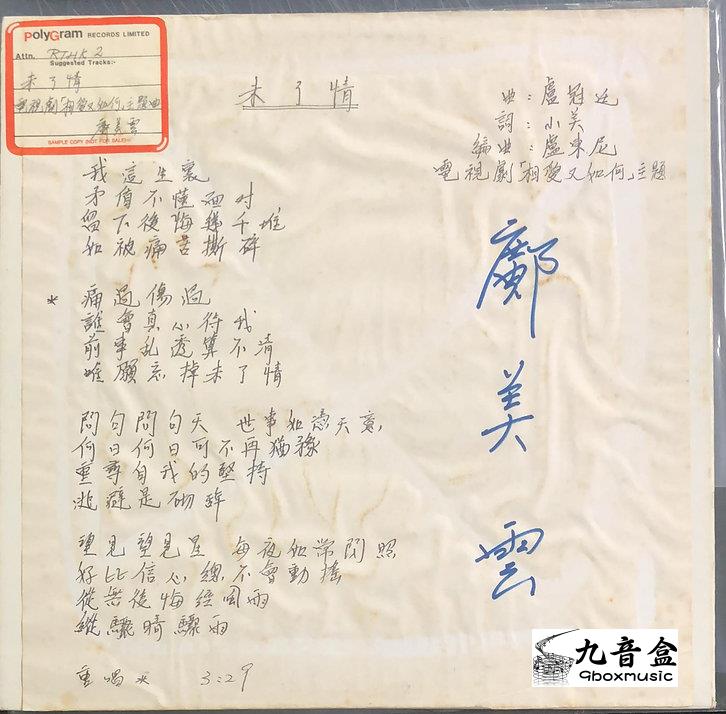 PolyGram RECORDS LIMITED
Attn. RTHK 2
Suggested Tracks:-
未了情
電視劇「相愛又如何」主題曲
鄺美雲
SAMPLE COPY (NOT FOR SALE)
未了情
曲:盧冠廷
詞:小美
編曲:盧東尼
電視劇「相愛又如何」主題
我這生裏
矛盾不懂面对
留下後悔幾千堆
如被痛苦撕碎
* 痛過傷過
誰會真心待我
前事乱透算不清
唯願忘掉未了情
問句問句天 世事如憑天意,
何日何日可不再猶豫
重尋自我的堅持
逃避是砌辞
望見望見星 每夜如常閃照
好比信心總不會動搖
從無後悔經風雨
縱驟晴驟雨
重唱 * 3:29
鄺美雲
九音盒
9boxmusic